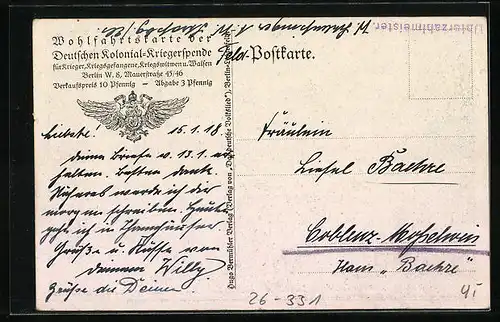 Wohlfahrtskarte der
Deutschen Kolonial-Kriegerspende
für Krieger, Kriegsgefangene, Kriegswitwen u. Waisen
Berlin W. 8, Mauerstraße 45/46
Verkaufspreis 10 Pfennig — Abgabe 3 Pfennig
Liebste! 15.1.18.
Deinen Briefe v. 13.1. er-
halten. Besten Dank.
Näheres werde ich dir
morgen schreiben. Heute
geh ich in Thannhäuser.
Grüße u. Küsse von
deinem Willy
Grüße die Deinen.
Hugo Bermühler Verlag (Verlag von „Das deutsche Volkslied"), Berlin-Lichterfelde
Feld-Postkarte.
Unterzahlmeister.
Fräulein
Liesel Baehre
Coblenz-Moselweis
Haus „Baehre"
26-331
4,-